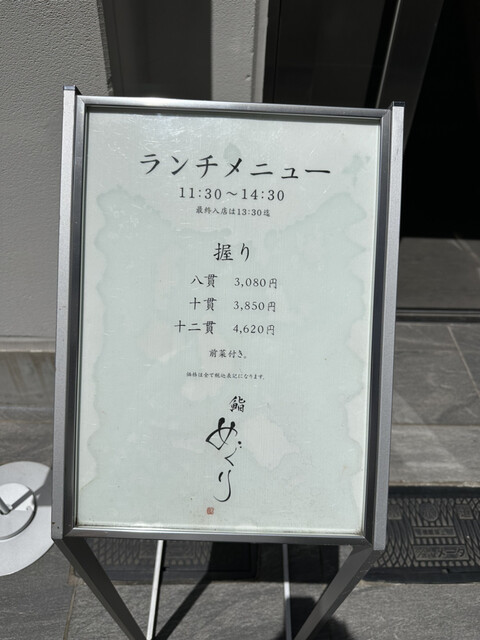 ランチメニュー
11:30～14:30
最終入店は13:30迄
握り
八貫 3,080円
十貫 3,850円
十二貫 4,620円
前菜付き。
価格は全て税込表記になります。
鮨
めぐり